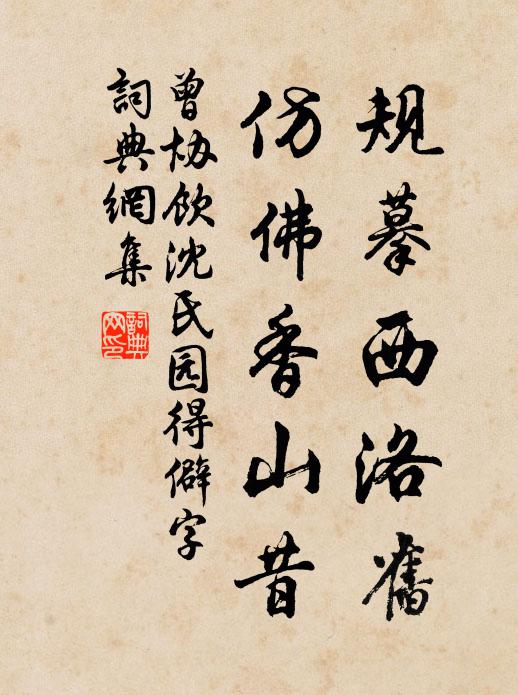 規摹西洛舊
仿佛香山昔
曾协飲沈氏园得僻字
詞典網集
詞典網印